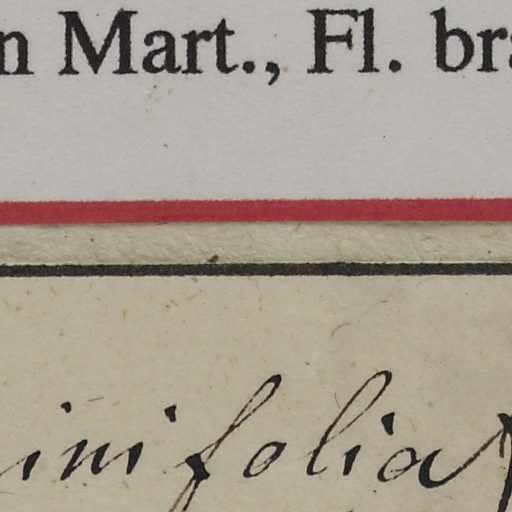 n Mart., Fl. bra
inifolia